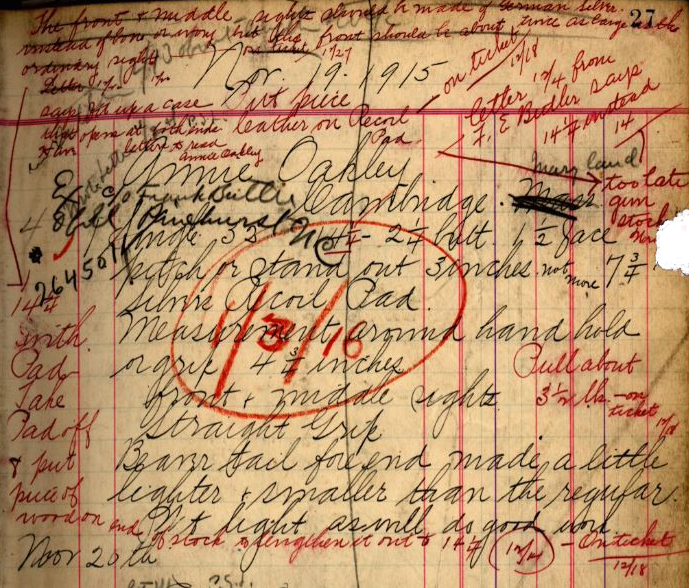 The front & middle sights should be made of German Silver
instead of bone or ivory but the front should be about twice as large as the
ordinary sight on ticket 11/27
27
Nov. 19. 1915
on ticket 12/18
Letter 12/4 from
F. E Butler says
14 1/4 instead
14
says fit up a case Put piece
that opens at both ends leather on Recoil
Pad
Annie Oakley
Annie Oakley
Maryland
too late
gun
stock
c/o Frank Butler Cambridge. Mass
Pinehurst N C
2 1/4 butt. 1 1/2 face
pitch or stand out 3 inches. not more 7 3/4
264501
14 1/4
Silvers Recoil Pad.
with Measurement around hand hold
Pad or grip 4 3/4 inches
Pull about
3 1/2 lbs. - on
ticket
12/18
Take front & middle sights
Pad off Straight Grip
& put Beaver tail fore end made a little
piece of lighter & smaller than the regular.
wood on end of stock & lengthen it out to 14 1/4 - On ticket
12/18
Put light as will do good work
Nov 20th
1/3/16